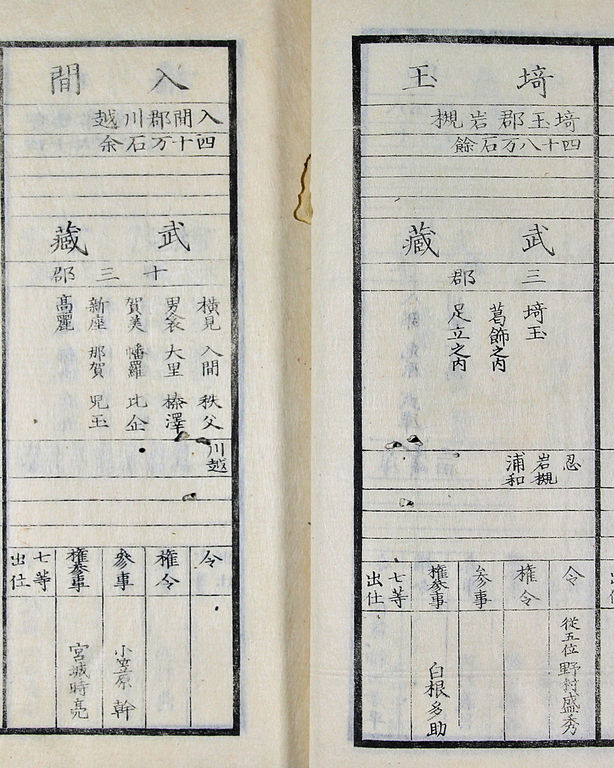 埼玉
埼玉郡岩槻
四十八万石餘
武藏
三郡
埼玉
葛飾之内
足立之内
忍
岩槻
浦和
令
從五位 野村盛秀
権令
参事
権参事
白根多助
七等
出仕
入間
入間郡川越
四十万石余
武藏
十三郡
横見 入間 秩父
男衾 大里 榛澤
賀美 幡羅 比企
新座 那賀 児玉
高麗
川越
令
権令
参事
小笠原 幹
権参事
宮城時亮
七等
出仕